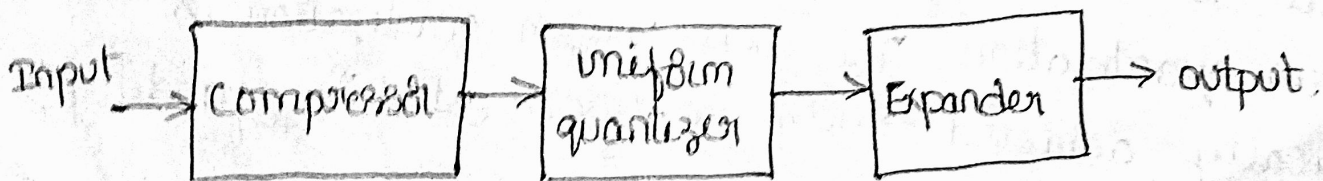 Input
Compressor
uniform
quantizer
Expander
output.